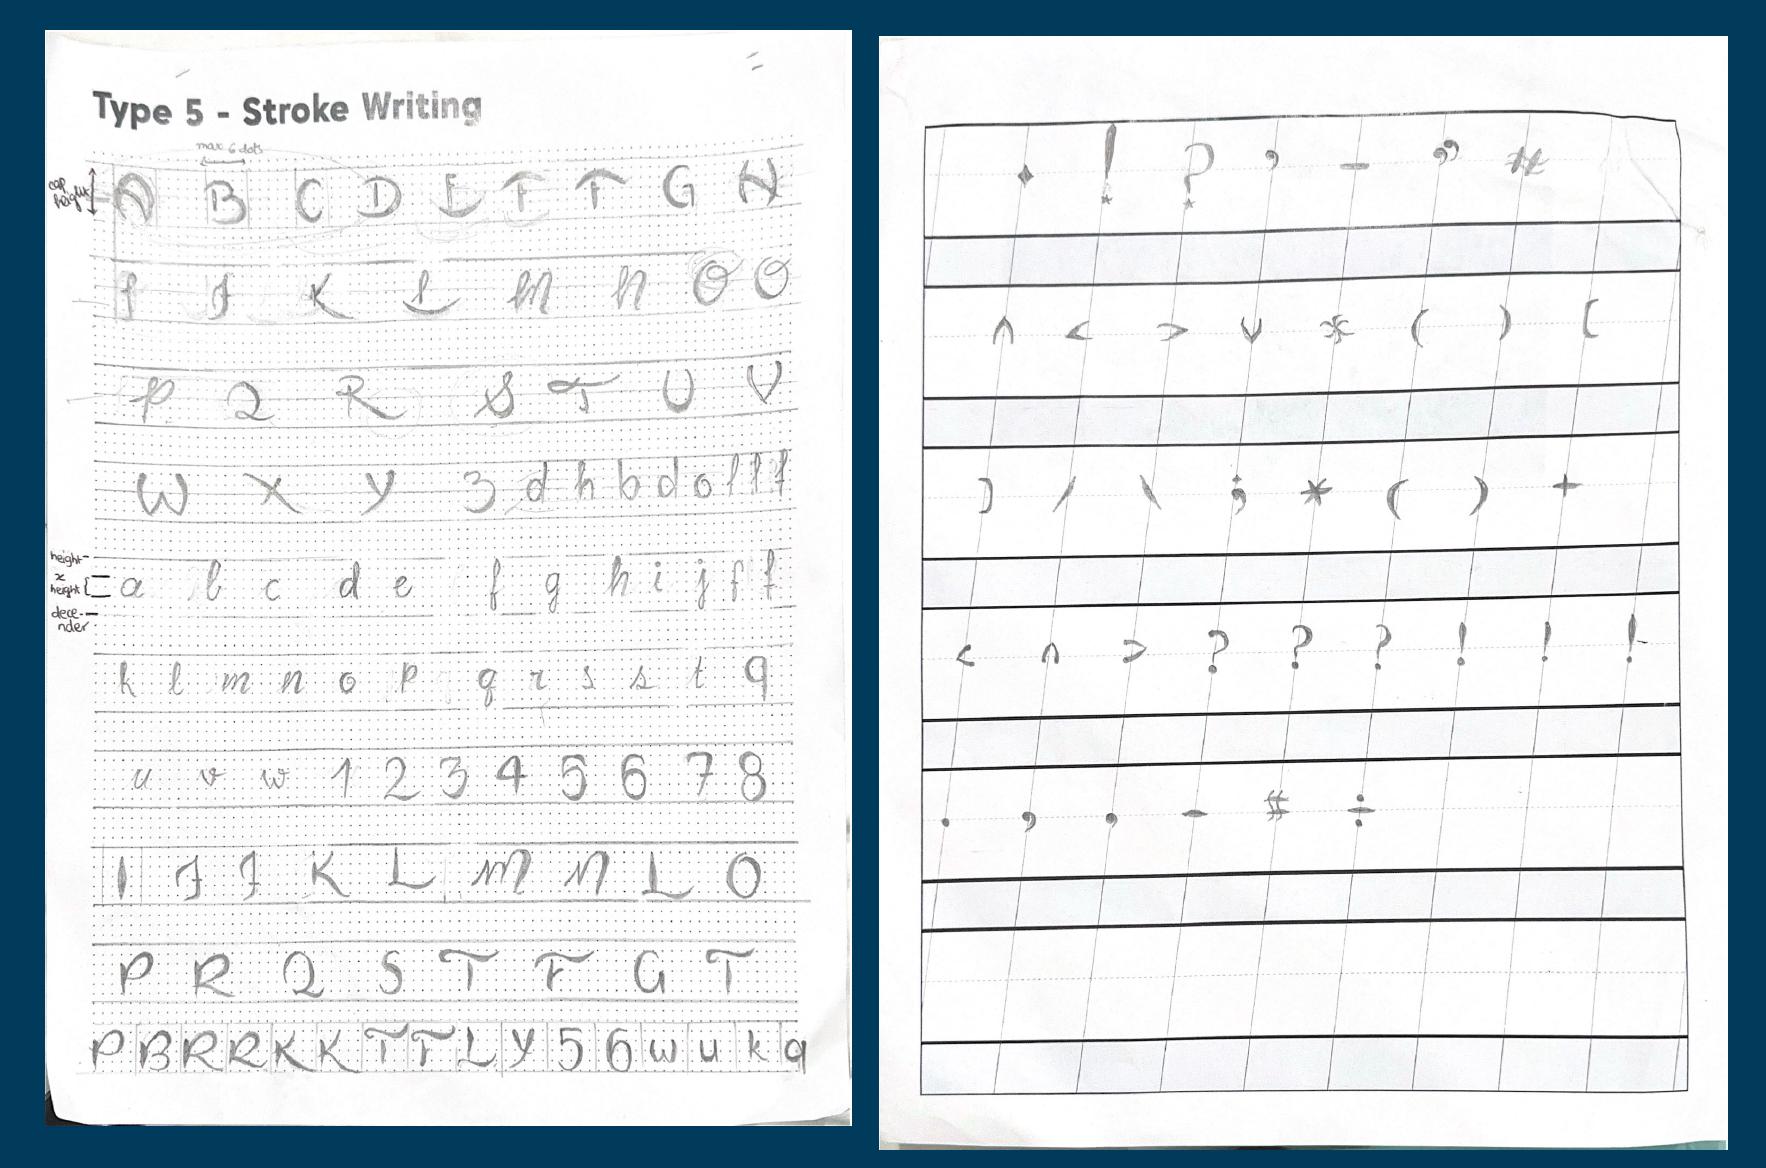 Type 5 - Stroke Writing
max 6 dots
cap height
A B C D E F F G H
I J K L M N O O
P Q R S T U V
W X Y 3 d h b d o l f f
height
x height
decender
a b c d e f g h i j f f
k l m n o p q r s s t q
u v w 1 2 3 4 5 6 7 8
I J J K L M N L O
P R Q S T F G T
P B R R K K T T L Y 5 6 w u k q
. ! ? , - ” *
^ < > v * ( ) [
] / \ ; * ( ) +
< ^ > ? ? ? ! ! !
. , , - # ÷